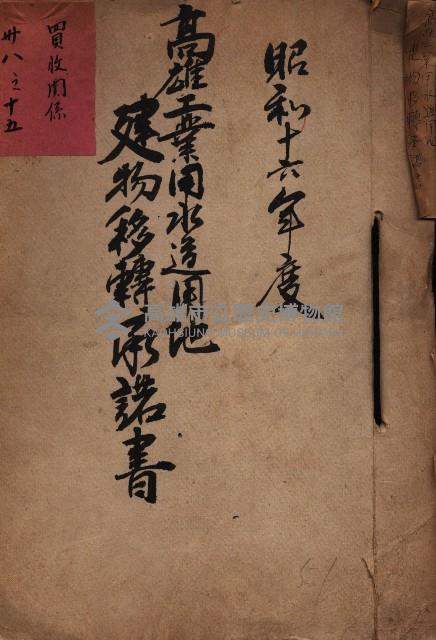 昭和十六年度
高雄工業用水道用地
建物移轉承諾書
買收関係
卅八之十五
高雄市立歷史博物館
KAOHSIUNG MUSEUM OF HISTORY